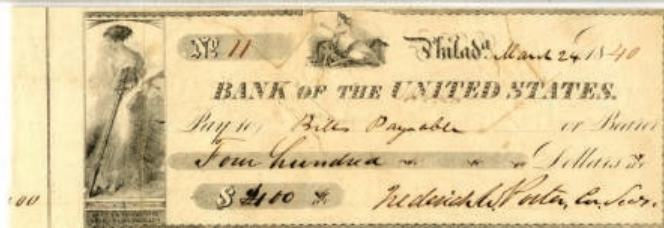 No 11 Philada. March 24 1840
BANK OF THE UNITED STATES.
Pay to Bills Payable or Bearer
Four hundred Dollars
$ 400
Frederick W. Porter, Cor. Secy.
00